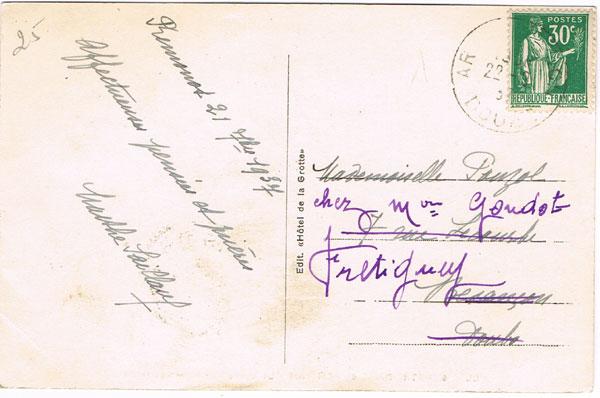 25
Remonot 21 7bre 1937
Affectueuses pensées et prières
Marthe
Edit. «Hôtel de la Grotte»
POSTES
30c
REPUBLIQUE-FRANÇAISE
AR
22
DOU
Mademoiselle Pouzol
chez Mme Goudot
7 rue Lecourbe
Fretigney
Besançon
Doubs